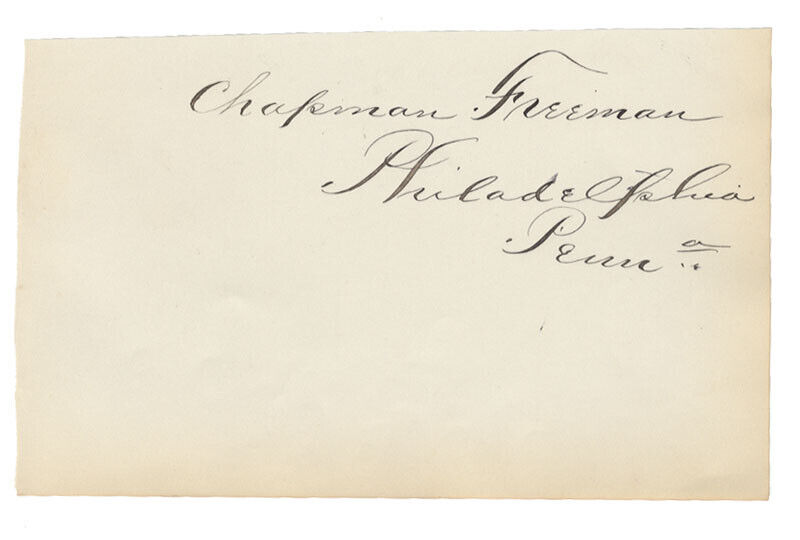 Chapman Freeman
Philadelphia
Penna